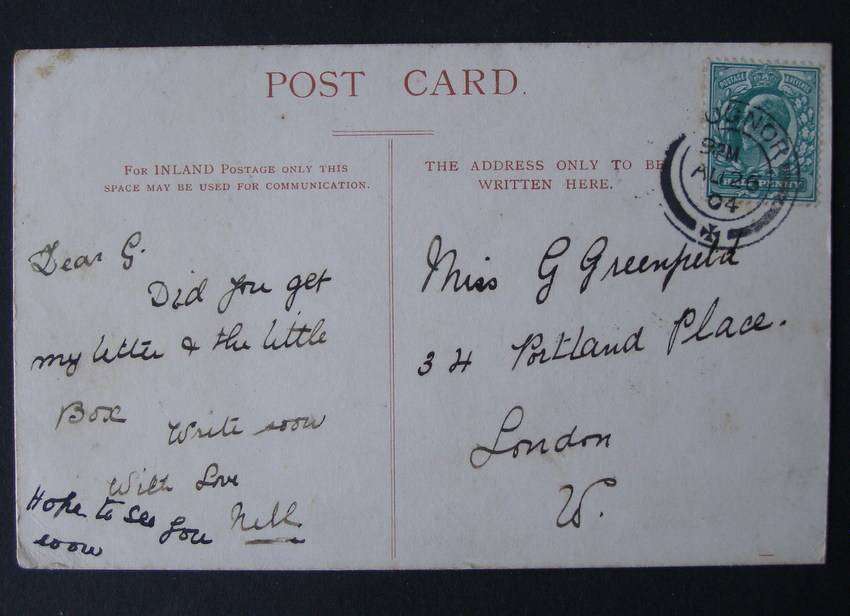 POST CARD.
FOR INLAND POSTAGE ONLY THIS
SPACE MAY BE USED FOR COMMUNICATION.
Dear G.
Did you get
my letter & the little
Box
Write soon
With Love
Nell
Hope to see you
soon
THE ADDRESS ONLY TO BE
WRITTEN HERE.
Miss G Greenfield
34 Portland Place.
London
W.
POSTAGE
OGNOR
AU 26
04